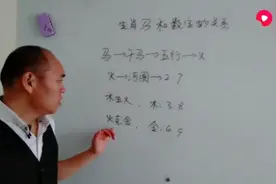 生肖马和数字的关系
马→午马→五行→火
火→河图→27
木生火、木:38
火克金、金:49